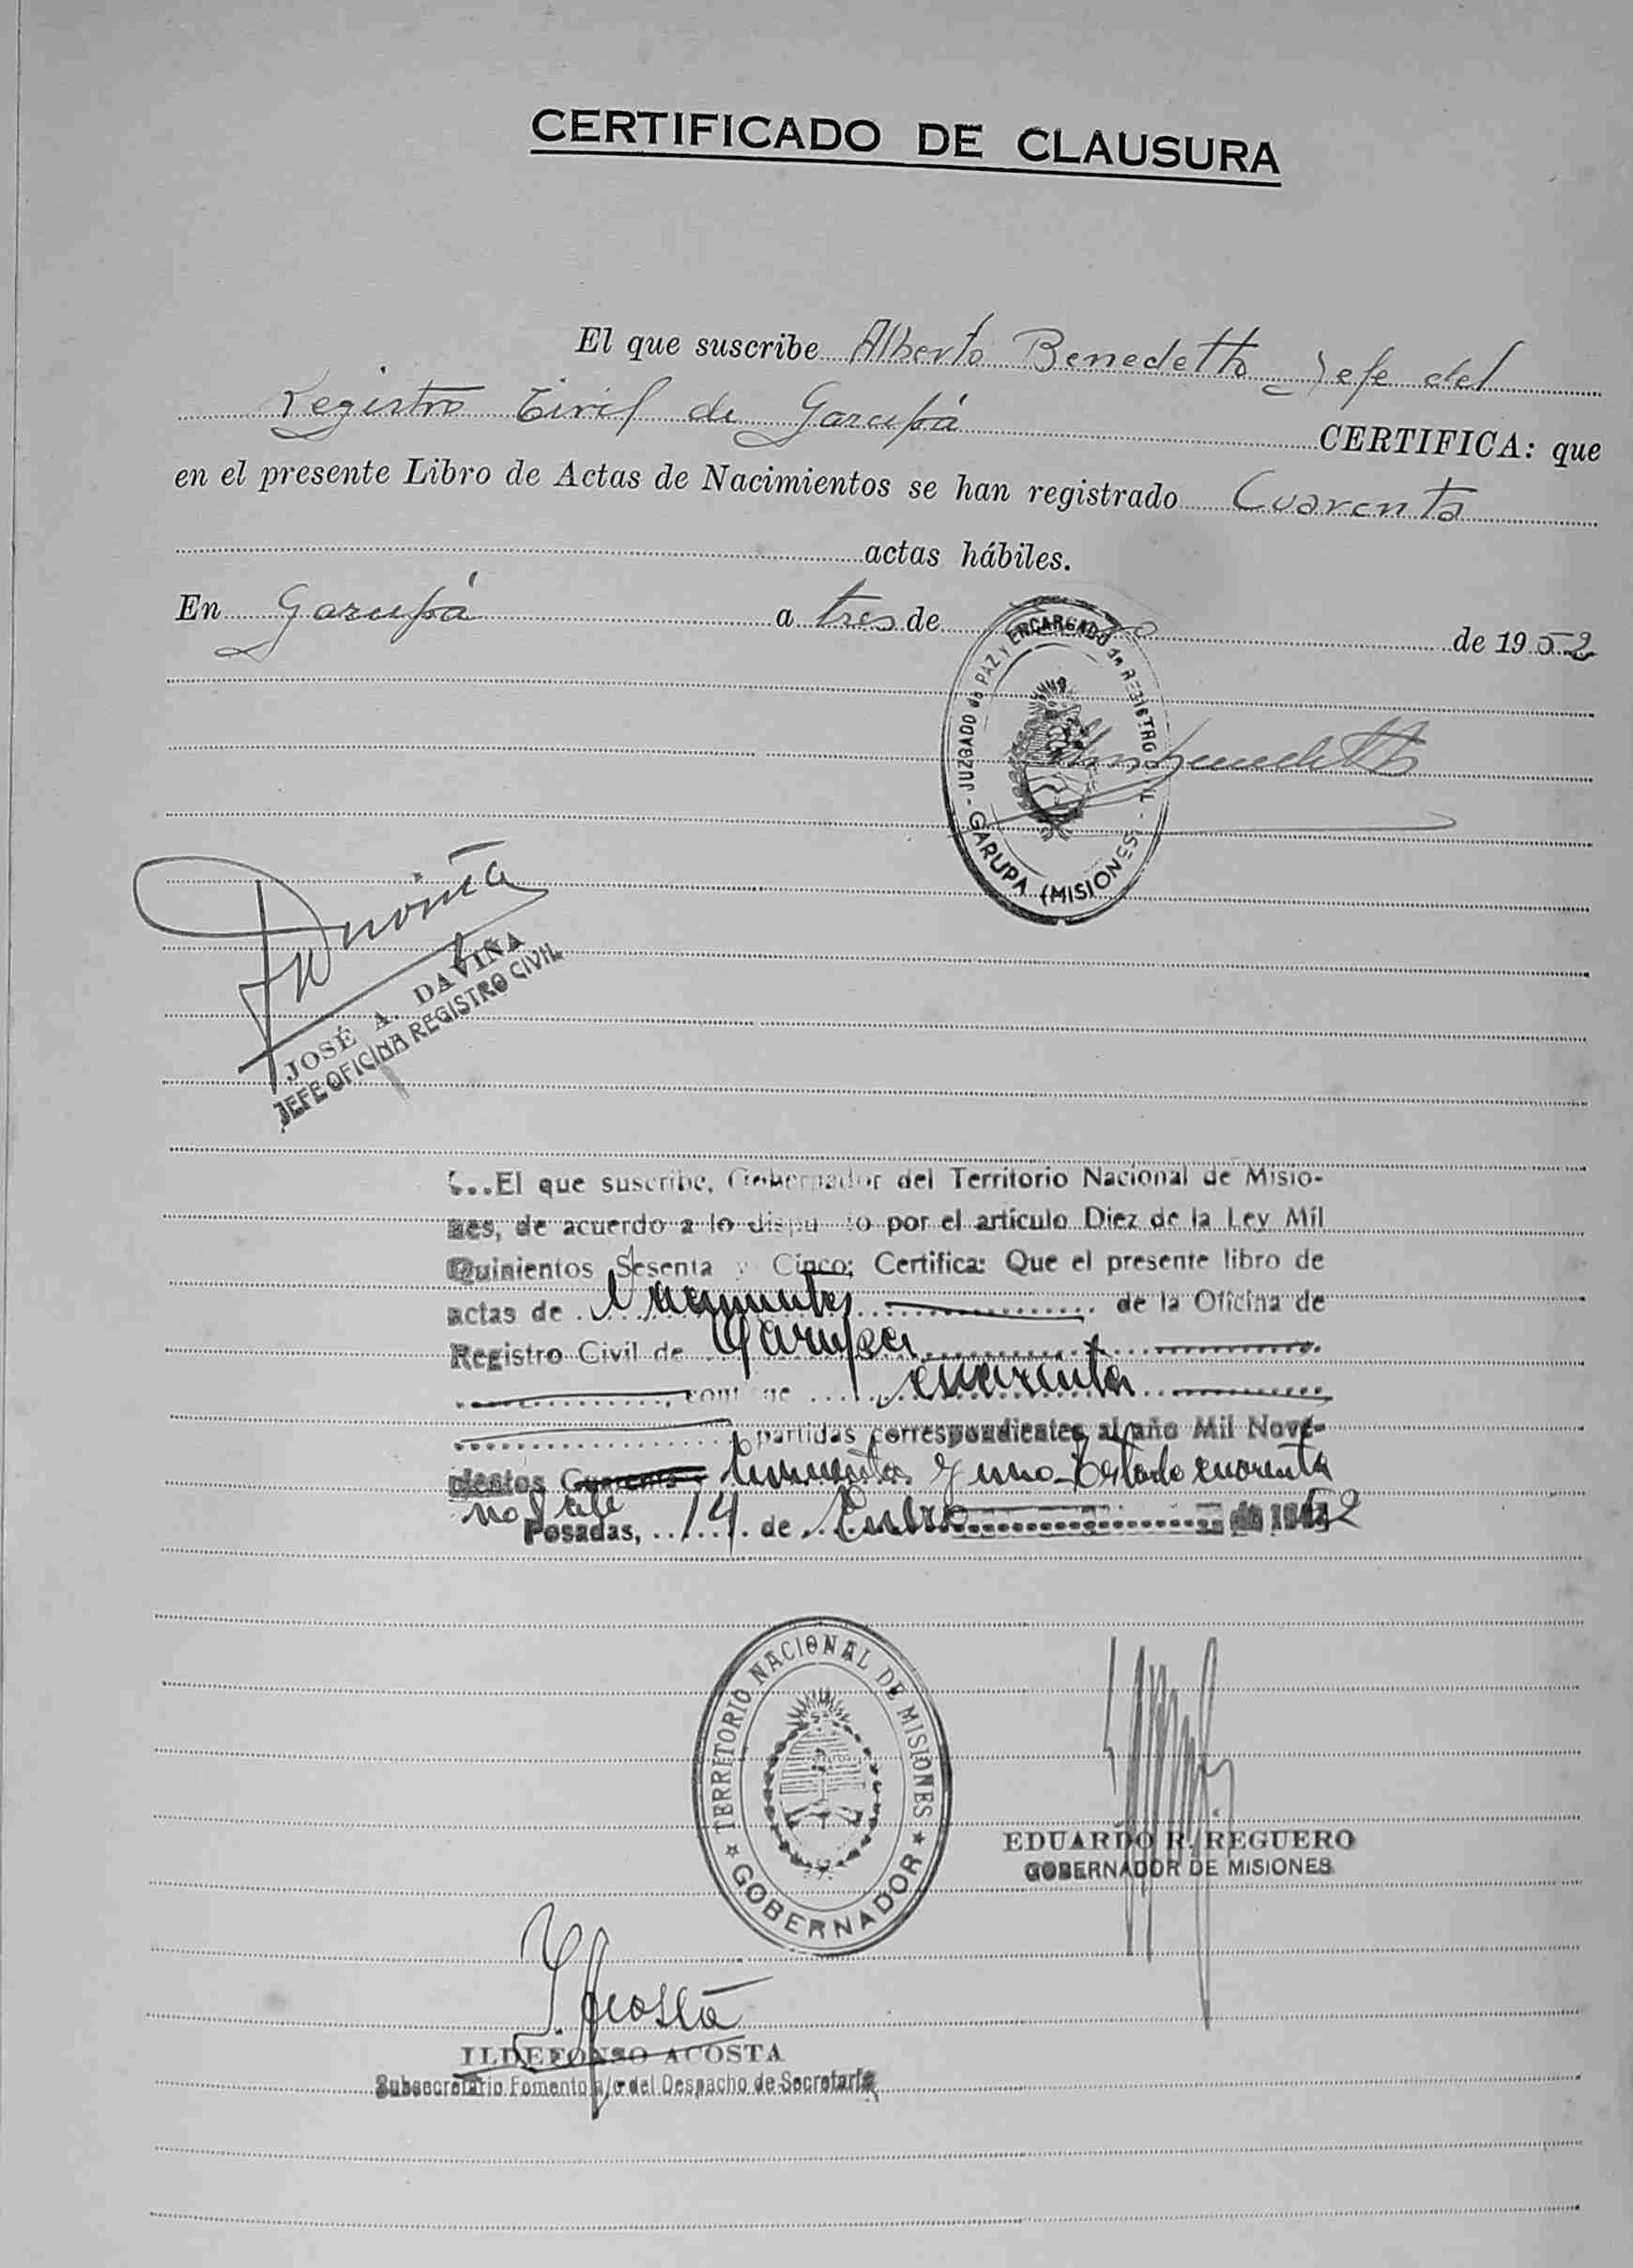 CERTIFICADO DE CLAUSURA
El que suscribe Alberto Benedetto Jefe del
Registro Civil de Garupá CERTIFICA: que
en el presente Libro de Actas de Nacimientos se han registrado Cuarenta
actas hábiles.
En Garupá a tres de de 1952
JUZGADO de PAZ y ENCARGADO de REGISTRO CIVIL
GARUPA (MISIONES)
JOSÉ A. DAVIÑA
JEFE OFICINA REGISTRO CIVIL
...El que suscribe, Gobernador del Territorio Nacional de Misio-
nes, de acuerdo a lo dispuesto por el artículo Diez de la Ley Mil
Quinientos Sesenta y Cinco; Certifica: Que el presente libro de
actas de Nacimientos de la Oficina de
Registro Civil de Garupá
contiene cuarenta
partidas correspondientes al año Mil Nove-
cientos Cuarenta y cincuenta y uno - Testado cuarenta
no vale
Posadas, 14 de Enero de 1952
TERRITORIO NACIONAL DE MISIONES
GOBERNADOR
EDUARDO R. REGUERO
GOBERNADOR DE MISIONES
I. Acosta
ILDEFONSO ACOSTA
Subsecretario Fomento a/c del Despacho de Secretaría